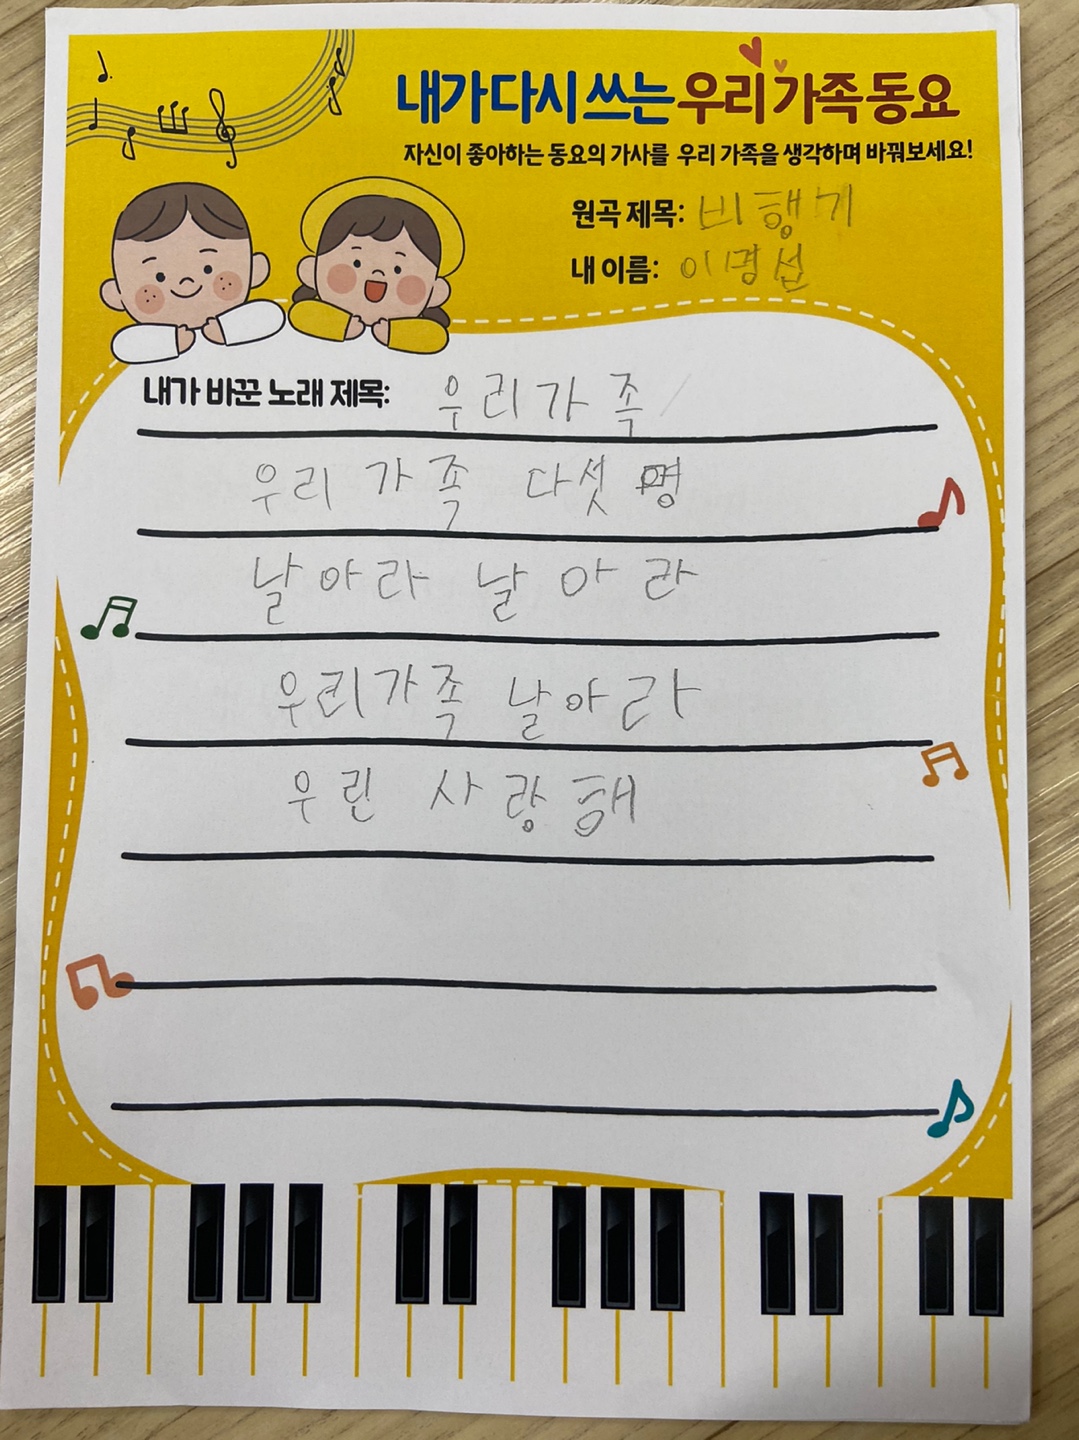 내가 다시 쓰는 우리 가족 동요
자신이 좋아하는 동요의 가사를 우리 가족을 생각하며 바꿔보세요!
원곡 제목: 비행기
내 이름: 이명섭
내가 바꾼 노래 제목: 우리가족
우리 가족 다섯 명
날아라 날아라
우리가족 날아라
우린 사랑해